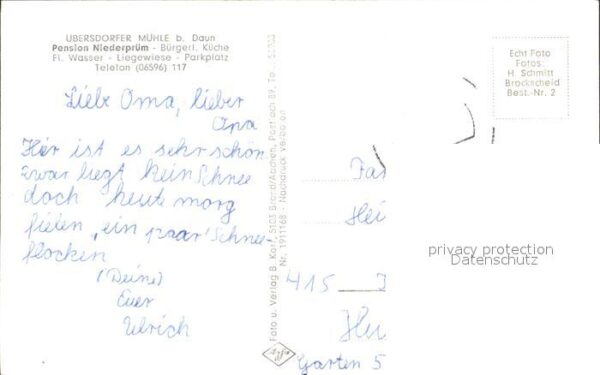 ÜBERSDORFER MÜHLE b. Daun
Pension Niederprüm - Bürgerl. Küche
Fl. Wasser - Liegewiese - Parkplatz
Telefon (06596) 117
Liebe Oma, lieber
Opa
Hier ist es sehr schön
zwar liegt kein Schnee
doch heute morg
fielen "ein paar" Schnee-
flocken
(Deine)
Euer
Ulrich
Foto u. Verlag B. Korr, 5103 Brand/Aachen, Postfach 89, Tel.
Nr. 1911168 - Nachdruck verboten
Echt Foto
Fotos:
H. Schmitt
Brockscheid
Best.-Nr. 2
Fa
Hei
415
Hu
Garten 5
privacy protection
Datenschutz